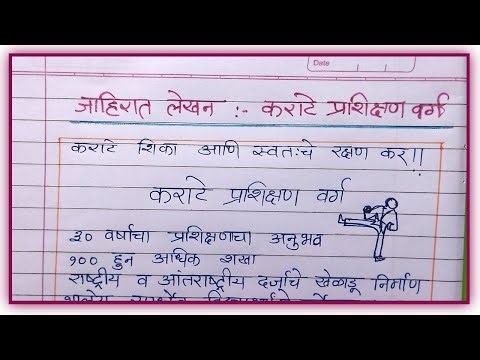 Date
जाहिरात लेखन :- कराटे प्रशिक्षण वर्ग
कराटे शिका आणि स्वतःचे रक्षण करा!!
कराटे प्रशिक्षण वर्ग
३० वर्षाचा प्रशिक्षणाचा अनुभव
१०० हुन अधिक शाखा
राष्ट्रीय व आंतराष्ट्रीय दर्जाचे खेळाडू निर्माण